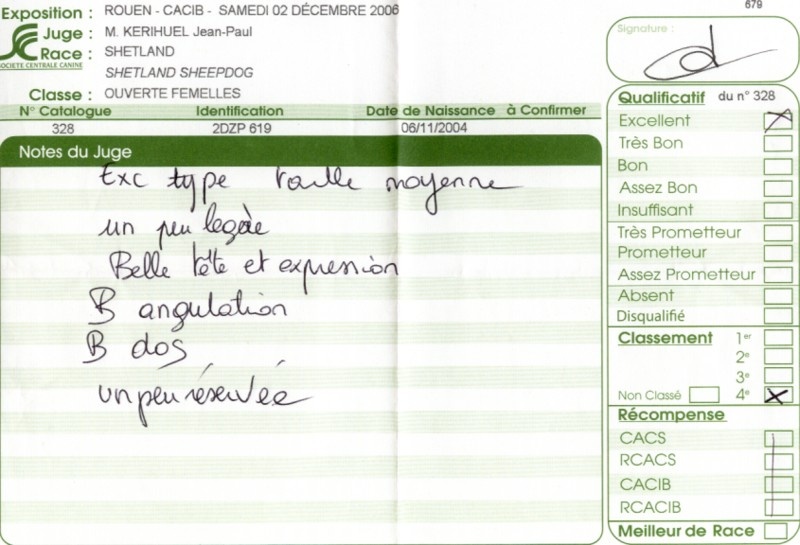 679
Exposition : ROUEN - CACIB - SAMEDI 02 DÉCEMBRE 2006
Juge : M. KERIHUEL Jean-Paul
Race : SHETLAND
SOCIETE CENTRALE CANINE
SHETLAND SHEEPDOG
Classe : OUVERTE FEMELLES
N° Catalogue Identification Date de Naissance à Confirmer
328 2DZP 619 06/11/2004
Notes du Juge
Exc type taille moyenne
un peu legère
Belle tête et expression
B angulation
B dos
un peu réservée
Signature :
Qualificatif du n° 328
Excellent
Très Bon
Bon
Assez Bon
Insuffisant
Très Prometteur
Prometteur
Assez Prometteur
Absent
Disqualifié
Classement 1er
2e
3e
Non Classé 4e
Récompense
CACS
RCACS
CACIB
RCACIB
Meilleur de Race